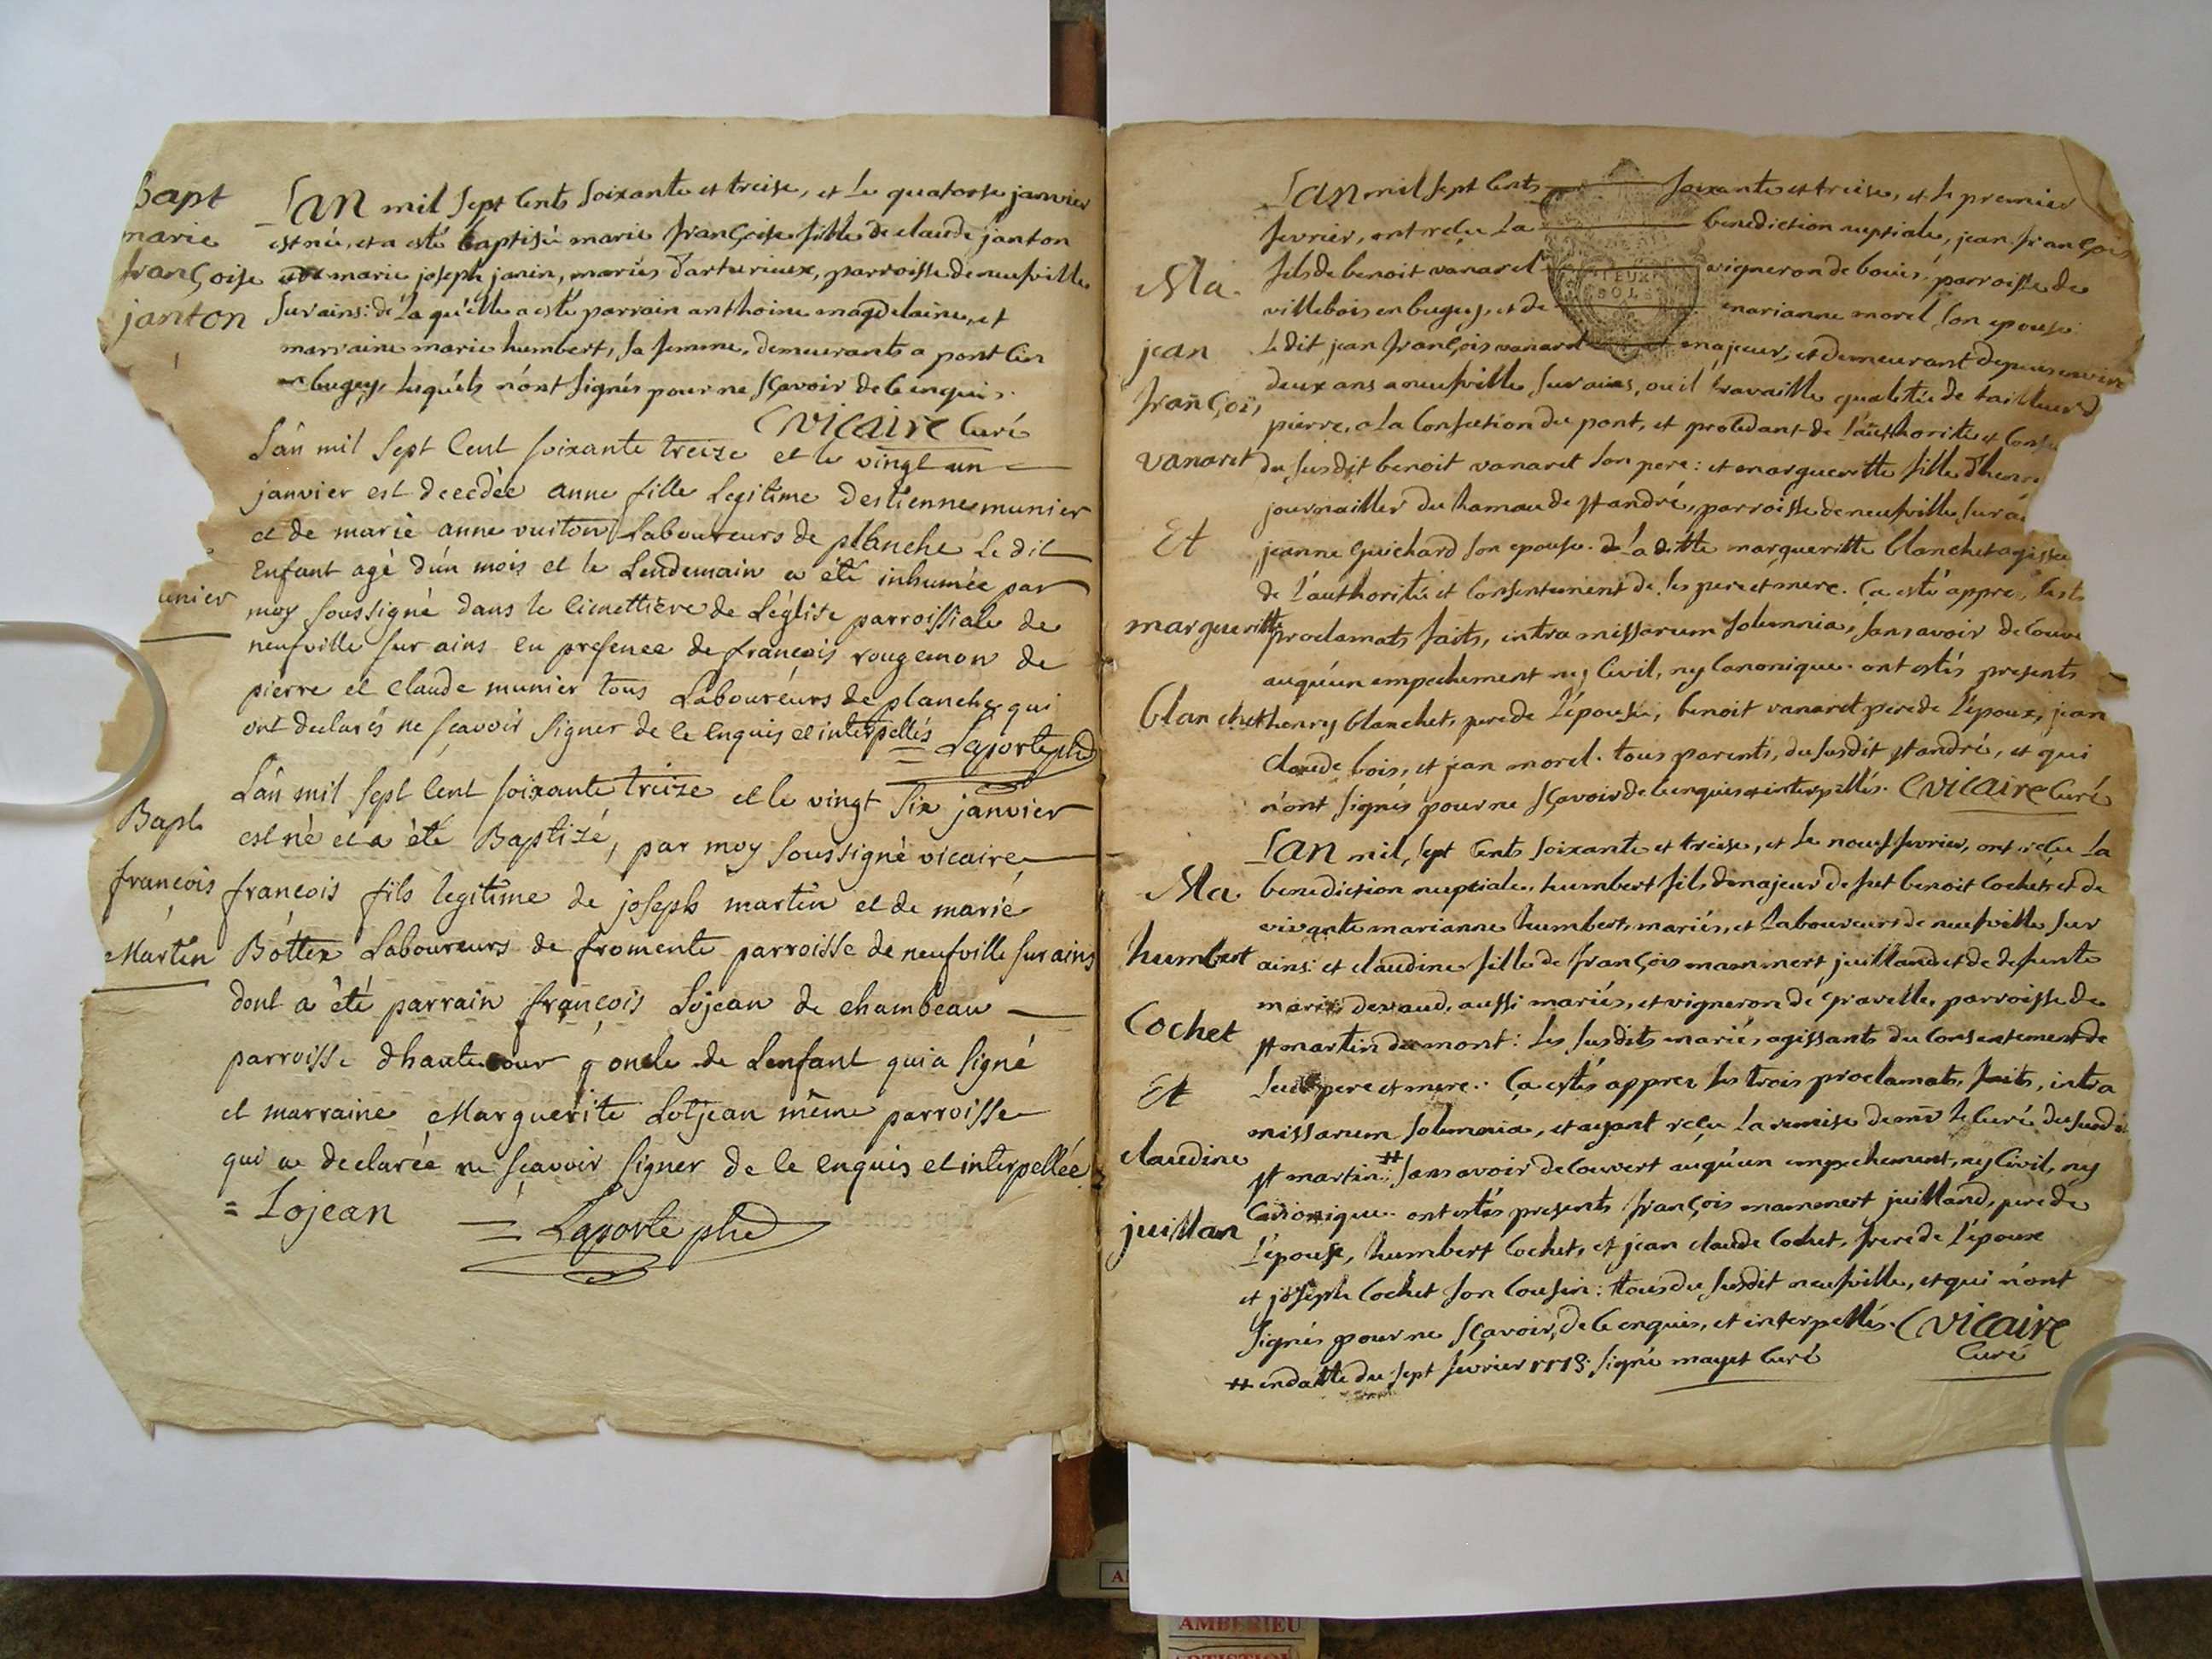 Bapt
marie
françoise
janton
L'an mil sept cents soixante et treise, et le quatorse janvier
est née, et a esté baptisée marie françoise fille de claude janton
marie joseph janin, mariés d'arturieux, parroisse de neufville
sur ains: de la quélle a esté parrain anthoine magdelaine, et
marraine marie humbert, sa femme, demeurants a pont
en bugey, lesquéls n'ont signés pour ne sçavoir de ce enquis.
Cvicaire Curé
unier
L'an mil sept cent soixante treize et le vingt un
janvier est decedée anne fille legitime destienne munier
et de marie anne vuiton laboureurs de planche le dit
Enfant agé d'un mois et le lendemain a été inhumée par
moy soussigné dans le cimettiere de l'église parroissiale de
neufville sur ains en presence de françois rougemon de
pierre et claude munier tous laboureurs de planche qui
ont declarés ne sçavoir signer de ce enquis et interpellés
= Laporte ptre
Bapt
françois
Martin
L'an mil sept cent soixante treize et le vingt six janvier
est né et a été Baptizé, par moy soussigné vicaire
françois fils legitime de joseph martin et de marie
Bottex laboureurs de fromente parroisse de neufville sur ains
dont a été parrain françois Lojean de chambeau
parroisse dhautecour oncle de l'enfant qui a signé
et marraine Marguerite Lotjean même parroisse
qui a declarée ne sçavoir signer de ce enquis et interpellée
= Lojean = Laporte ptre
Ma
jean
françois
vanaret
Et
margueritte
blanchet
L'an mil sept cents soixante et treise, et le premier
fevrier, ont reçu la benediction nuptiale, jean françois
fils de benoit vanaret vigneron de bouis parroisse de
villebois en bugey, et de marianne morel son epouse
Ledit jean françois vanaret majeur, et demeurant depuis environ
deux ans a neufville sur ains, ou il travaille qualitée de tailleur d
pierre, a la confection du pont, et procedant de l'authorité et
du susdit benoit vanaret son pere: et margueritte fille d'henri
journallier du hamau de st andré, parroisse de neufville sur
jeanne Guichard son epouse. la ditte margueritte blanchet
de l'authorité et consentement de ses pere et mere. Ça esté appre
proclamats faits, intra missarum solemnia, sans avoir
auqu'un empechement ny civil, ny canonique. ont estés presents
henry blanchet, pere de l'épouse, benoit vanaret pere de l'époux, jean
claude bois, et jean morel. tous parents, du susdit st andré, et qui
n'ont signés pour ne sçavoir de ce enquis et interpellés. Cvicaire Curé
Ma
humbert
Cochet
Et
claudine
juillan
L'an mil, sept cents soixante et treise, et le neuf fevrier, ont reçu la
benediction nuptiale, humbert fils majeur de fut benoit cochet et de
vivante marianne humbert, mariés, et laboureurs de neufville sur
ains: et claudine fille de françois mammert juilland et de defunte
marie devaud, aussi mariés, et vigneron de gravelle, parroisse de
st martin du mont: les susdits mariés, agissants du consentement de
leurs pere et mere. Ça estés apprer les trois proclamats, faits, intra
missarum solemnia, et ayant reçu la remise de mr le Curé du susdit
st martin # sans avoir decouvert auqu'un empechement, ny civil, ny
Canonique. ont estés presents françois mammert juilland, pere de
l'épouse, humbert Cochet, et jean claude Cochet, frere de l'époux
et joseph Cochet son cousin: tous du susdit neufville, et qui n'ont
signés pour ne sçavoir, de ce enquis, et interpellés. Cvicaire
Curé
# en datte du sept fevrier 1773. signé mayet Curé
AMBERIEU